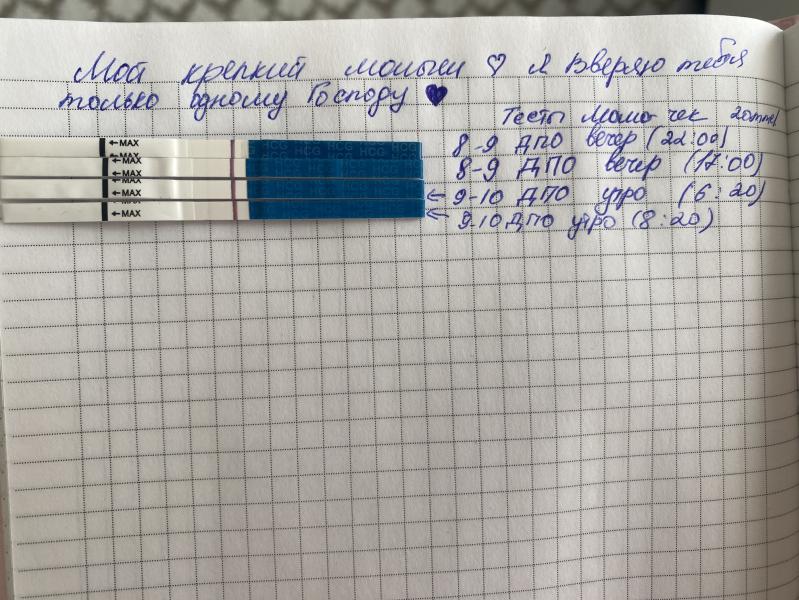 Мой крепкий малыш ♡ я вверяю тебя
только одному Господу ♥
Тесты Мамочек
8-9 ДПО вечер (22:00)
8-9 ДПО вечер (17:00)
9-10 ДПО утро (6:20)
9-10 ДПО утро (8:20)
←MAX
←MAX
←MAX
←MAX
HCG HCG HCG HCG